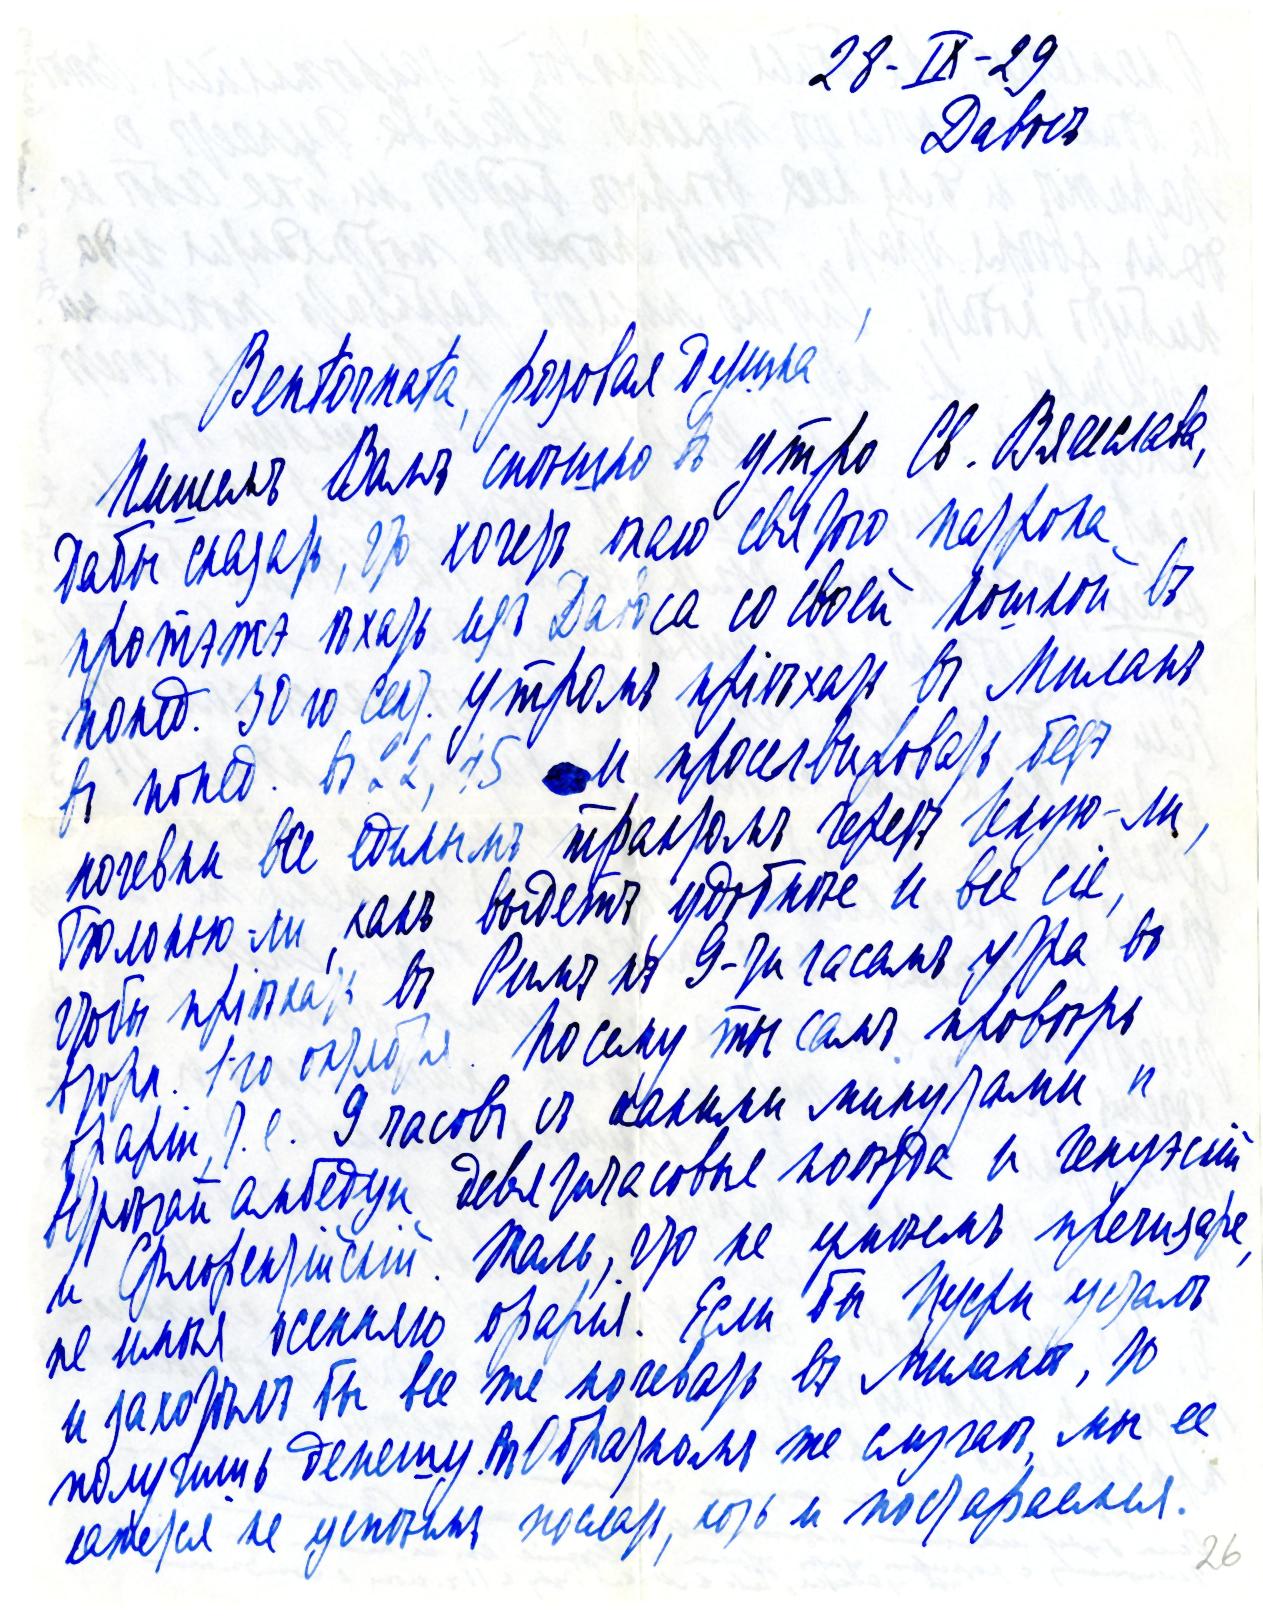 28-IX-29
Давосъ
Bentornata, розовая Душка!
Пишемъ Вамъ спѣшно въ утро Св. Вячеслава,
дабы сказать, что хочетъ онаго святого патрона
протэжэ ѣхать изъ Давоса со своей кошкой въ
понед. 30го сент. утромъ пріѣхать въ Миланъ
въ понед. въ 22,15 и прослѣдовать безъ
ночевки все единымъ трактомъ черезъ Геную-ли,
Болонью-ли, какъ выдетъ удобнѣе и все сіе,
чтобы пріѣхать въ Римъ къ 9-ти часамъ утра во
вторн. 1-го октября. Посему ты самъ провѣрь
орарій, т.е. 9 часовъ съ какими минутами и
встрѣчай амбедуи девятичасовые поѣзда и генуэскій
и Флорентійскій. Жаль, что не умѣемъ precisare,
не имѣя осенняго орарія. Если бы Пусти усталъ
и захотѣлъ бы все же ночевать въ Миланѣ, то
получишь депешу. Въ Обратномъ же случаѣ, мы ее
кажется не успѣемъ послать, хоть и постараемся.
26